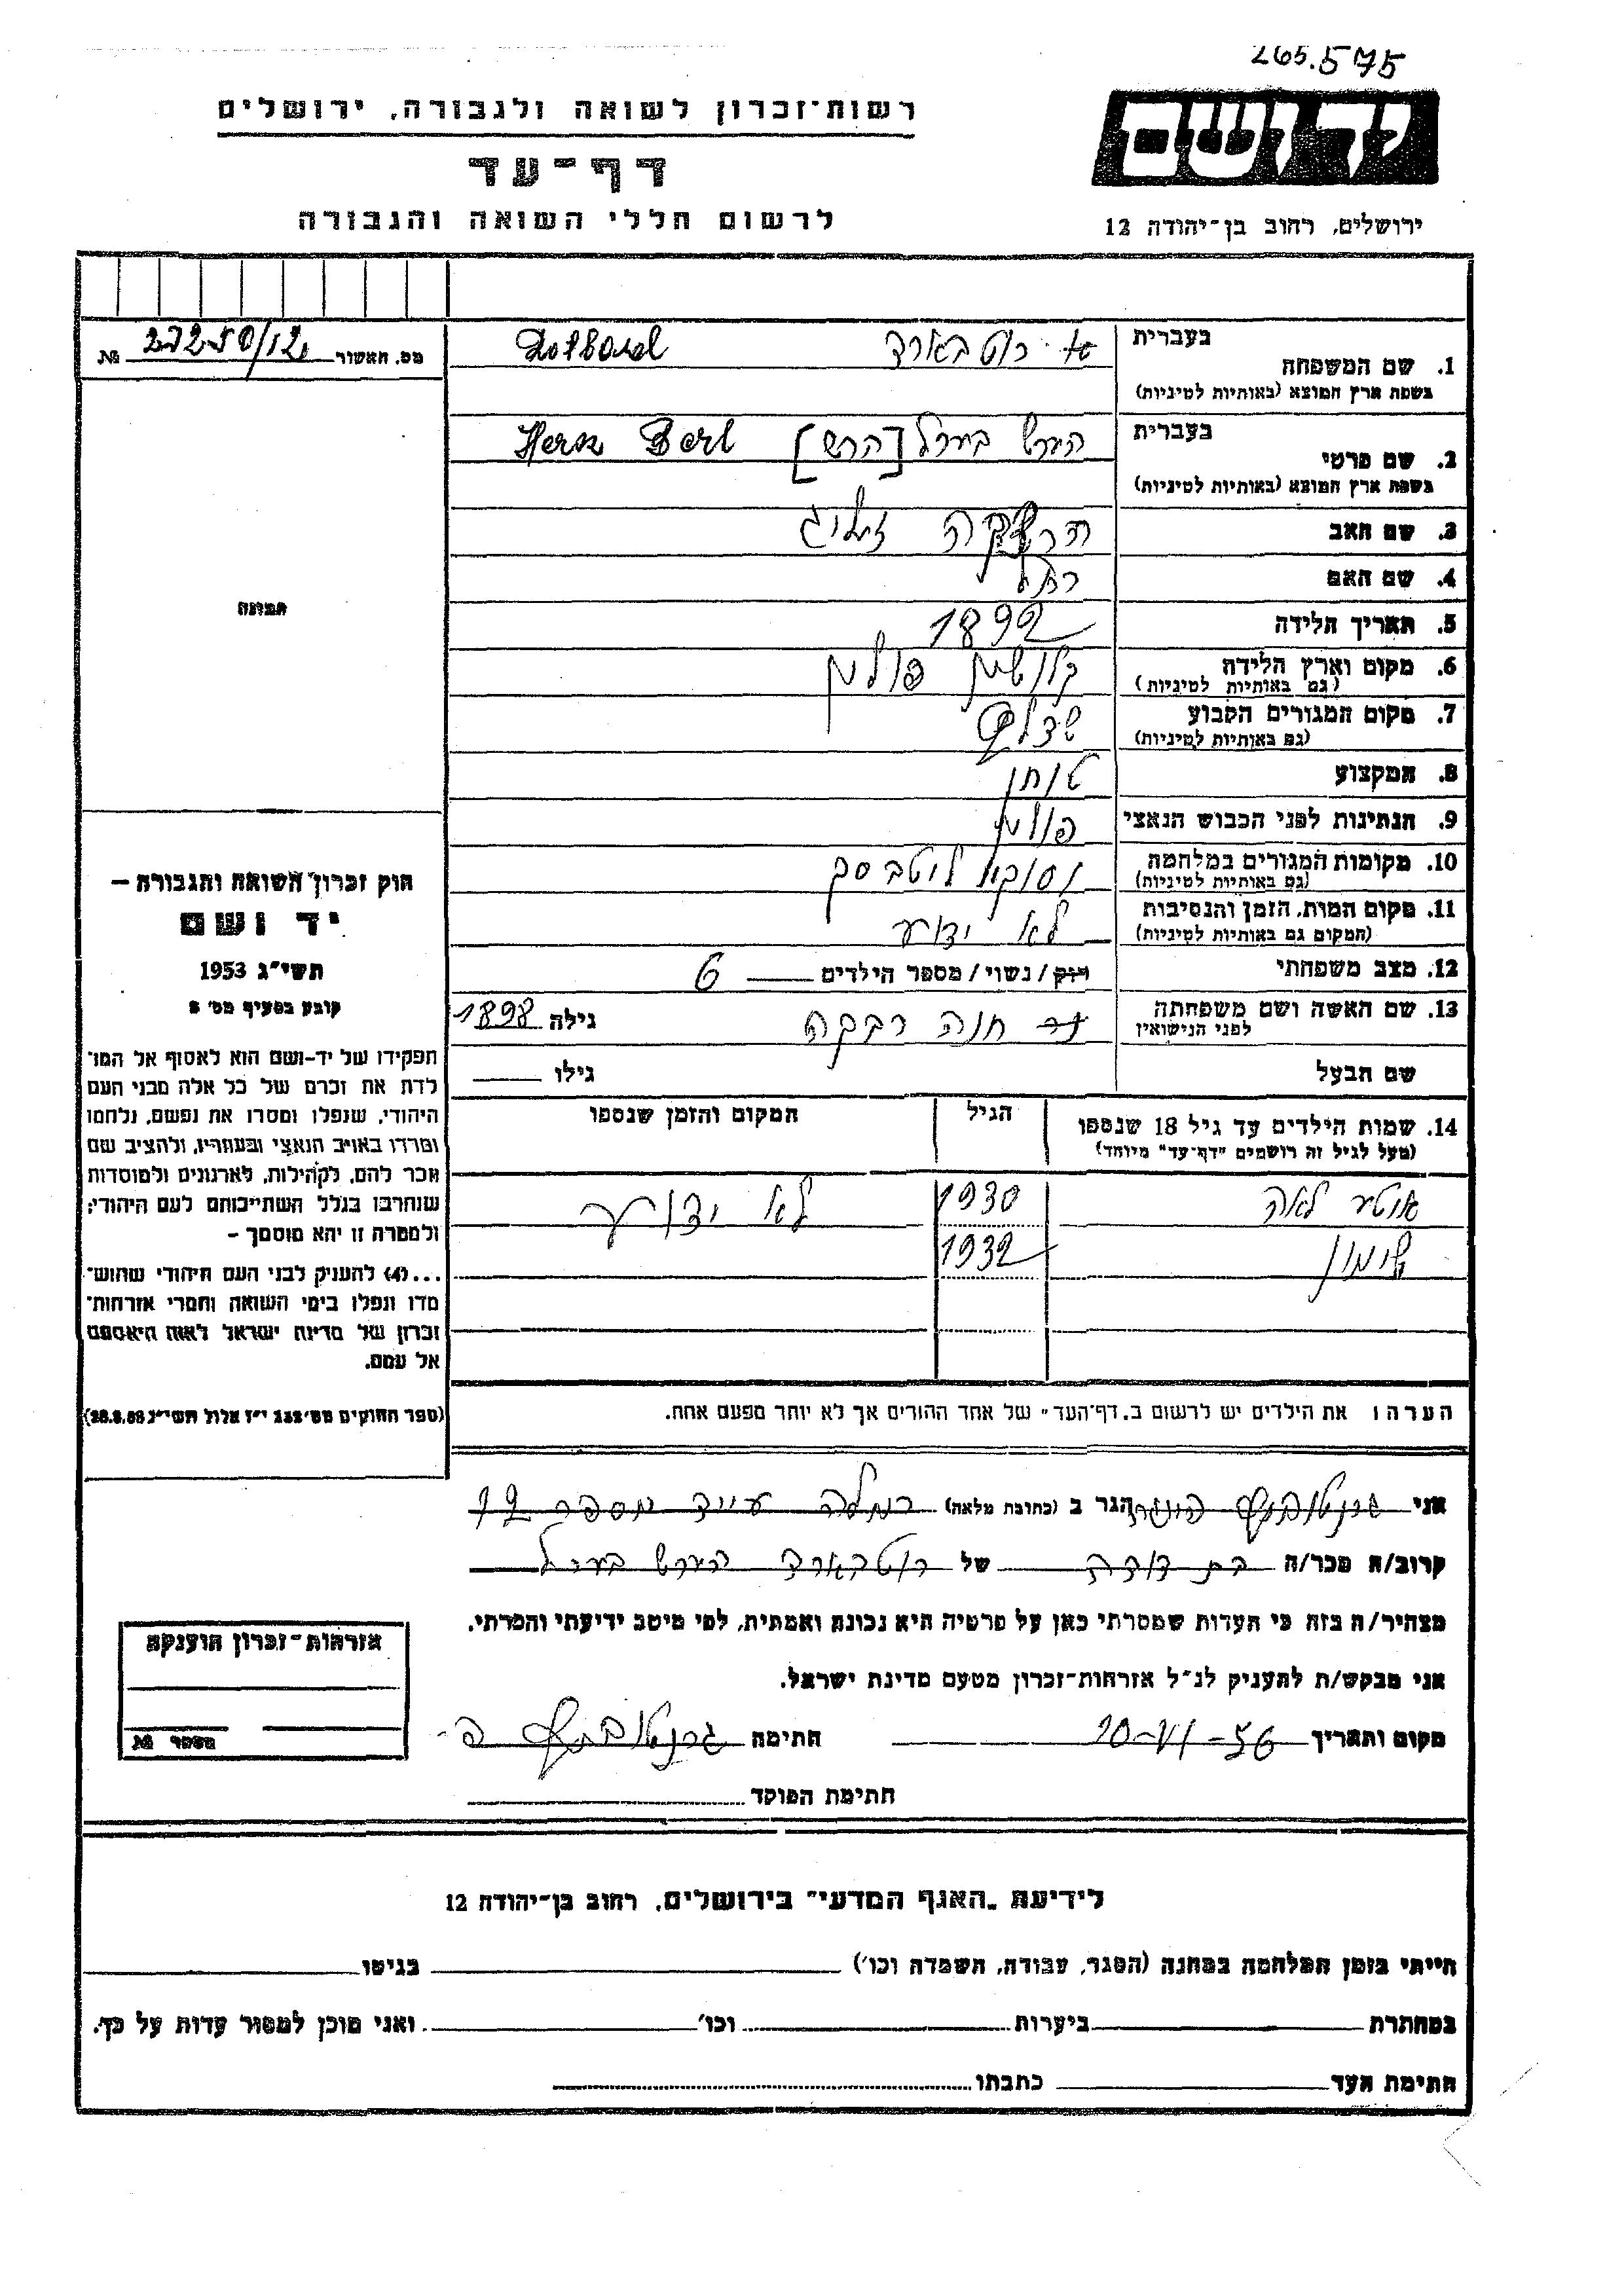 265.575
רשות־זכרון לשואה ולגבורה, ירושלים
ידושם
דף־עד
לרשום חללי השואה והגבורה
ירושלים, רחוב בן־יהודה 12
מס. האשור 27250/12 №
תמונה
חוק זכרון השואה והגבורה –
יד ושם
תשי"ג 1953
קובע בסעיף מס' 2
תפקידו של יד-ושם הוא לאסוף אל המו־
לדת את זכרם של כל אלה מבני העם
היהודי, שנפלו ומסרו את נפשם, נלחמו
ומרדו באויב הנאצי ובעוזריו, ולהציב שם
וזכר להם, לקהילות, לארגונים ולמוסדות
שנחרבו בגלל השתייכותם לעם היהודי;
ולמטרה זו יהא מוסמך –
...(4) להעניק לבני העם היהודי שהוש־
מדו ונפלו בימי השואה והמרי אזרחות־
זכרון של מדינת ישראל לאות היאספם
אל עמם.
(ספר החוקים מס' 132 י"ז אלול תשי"ג 28.8.53)
1. שם המשפחה בעברית רוטבארד Rotbard
בשפת ארץ המוצא (באותיות לטיניות)
2. שם פרטי בעברית הערש בערל [הרש] Hersz Berl
בשפת ארץ המוצא (באותיות לטיניות)
3. שם האב זליג
4. שם האם רחל
5. תאריך הלידה 1892
6. מקום וארץ הלידה פולין
(גם באותיות לטיניות)
7. מקום המגורים הקבוע שדלץ
(גם באותיות לטיניות)
8. המקצוע טוחן
9. הנתינות לפני הכבוש הנאצי פולין
10. מקומות המגורים במלחמה
(גם באותיות לטיניות)
11. מקום המות, הזמן והנסיבות לא ידוע
(המקום גם באותיות לטיניות)
12. מצב משפחתי רוק / נשוי / מספר הילדים 6
13. שם האשה ושם משפחתה לפני הנישואין חנה רבקה גילה 1898
שם הבעל גילו
14. שמות הילדים עד גיל 18 שנספו הגיל המקום והזמן שנספו
(מעל לגיל זה רושמים "דף־עד" מיוחד)
אוטע לאה 1930 לא ידוע
שימון 1932
הערה: את הילדים יש לרשום ב„דף־העד" של אחד ההורים אך לא יותר מפעם אחת.
אני הגר ב (כתובת מלאה) רמלה מספר 12
קרוב/ה מכר/ה בת דודה של רוטבארד הערש בערל
מצהיר/ה בזה כי העדות שמסרתי כאן על פרטיה היא נכונה ואמתית, לפי מיטב ידיעתי והכרתי.
אני מבקש/ת להעניק לנ"ל אזרחות־זכרון מטעם מדינת ישראל.
מקום ותאריך 10-VI-56 חתימה
חתימת הפוקד
אזרחות־זכרון הוענקה
מספר №
לידיעת „האגף המדעי" בירושלים, רחוב בן־יהודה 12
הייתי בזמן המלחמה במחנה (הסגר, עבודה, השמדה וכו') בגיטו
במחתרת ביערות וכו' ואני מוכן למסור עדות על כך.
חתימת העד כתבתו